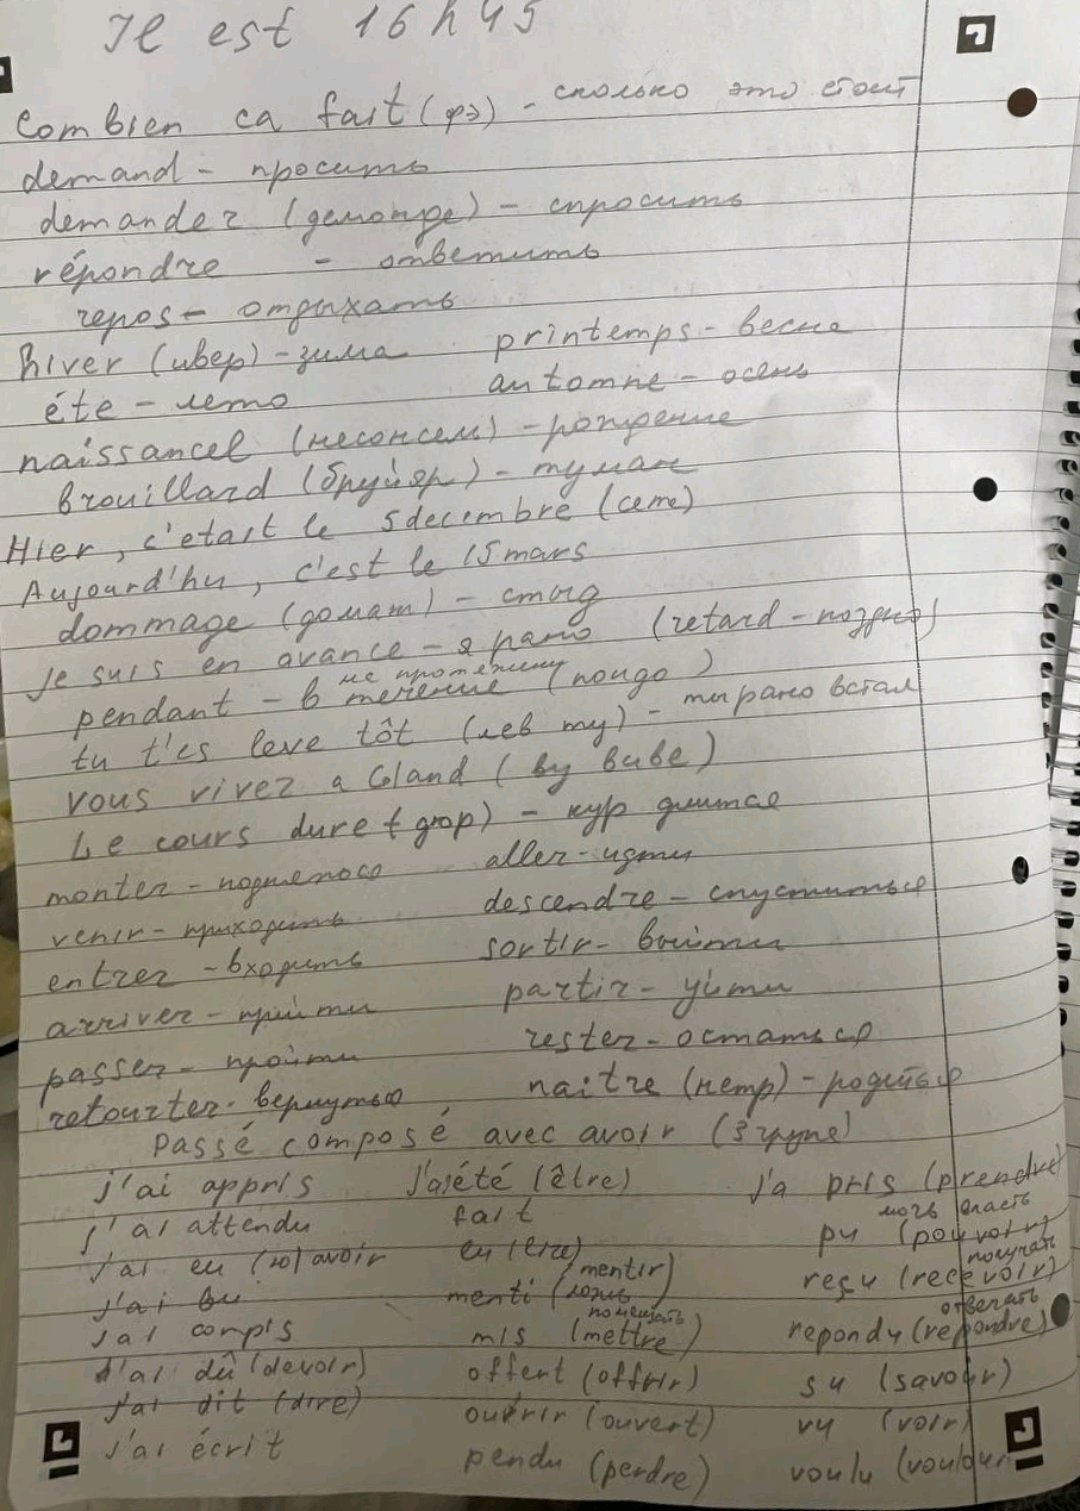 Il est 16 h 45
Combien ca fait (фэ) - сколько это стоит
demand - просить
demander (демонде) - спросить
répondre - ответить
repos - отдыхать
hiver (ивер) - зима printemps - весна
éte - лето automne - осень
naissancel (несонсел) - рождение
brouillard (бруйяр) - туман
Hier, c'etait le 5 decembre (сете)
Aujourd'hu, c'est le 15 mars
dommage (домаж) - стыд
je suis en avance - я рано (retard - поздно)
pendant - в течение (пондо)
tu t'es leve tôt (лев ту) - ты рано встал
vous vivez a Gland (ву виве)
Le cours dure (дюр) - кур длится
monter - aller - идти
venir - приходить descendre - спуститься
entrer - входить sortir - выйти
arriver - прийти partir - уйти
passer - пройти rester - остаться
retourter - вернуться naitre (нетр) - родиться
Passé composé avec avoir (3 групе)
j'ai appris J'aiété (être) j'a pris (prendre)
j'ai attendu fait мочь власть
pu (pouvoir)
j'ai eu (ю) avoir lu (lire) получать
(mentir) reçu (recevoir)
j'ai bu menti (ложь отвечать
j'ai compis mis (mettre) помещать repondu (repondre)
j'ai dû (devoir) offert (offrir) su (savoir)
j'ai dit (dire) ouvrir (ouvert) vu (voir)
j'ai écrit pendu (perdre) voulu (vouloir